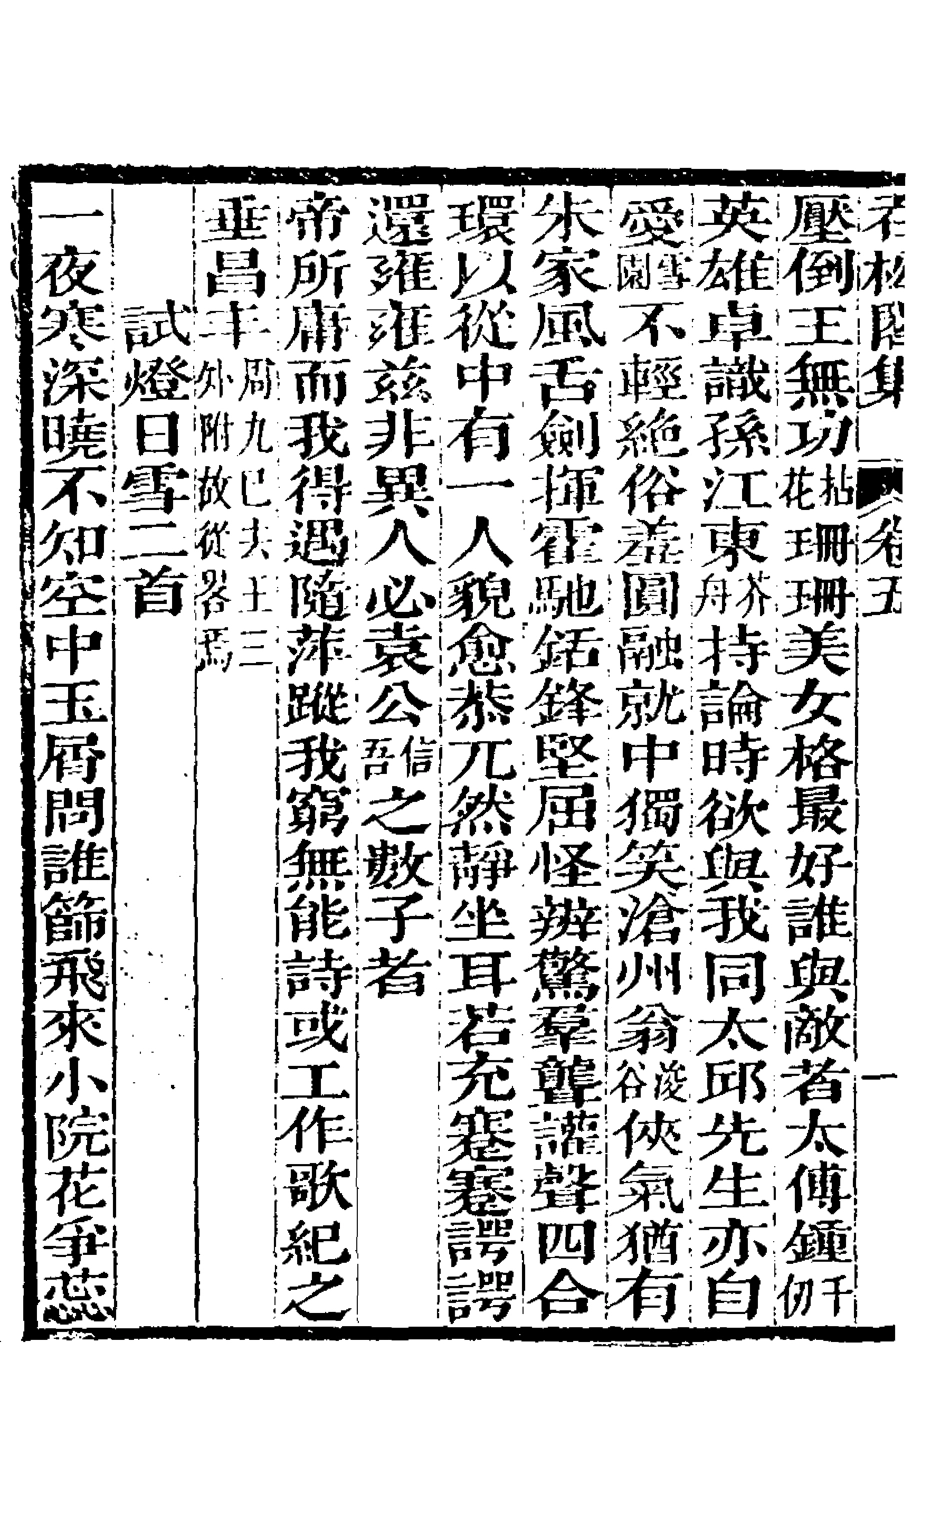 松閣集　卷五　一
壓倒王無功拈花珊珊美女格最好誰與敵者太傅鍾千仞
英雄卓識孫江東芥舟持論時欲與我同太邱先生亦自
愛雪園不輕絶俗羞圓融就中獨笑滄州翁浚谷俠氣猶有
朱家風舌劍揮霍馳銛鋒堅屈怪辨驚羣聾讙聲四合
環以從中有一人貌愈恭兀然靜坐耳若充蹇蹇諤諤
還雍雍兹非異人必袁公信吾之數子者
帝所庸而我得遇隨萍蹤我窮無能詩或工作歌紀之
垂昌丰周九巳夫王三外附故從畧焉
試燈日雪二首
一夜寒深曉不知空中玉屑問誰篩飛來小院花爭蕊